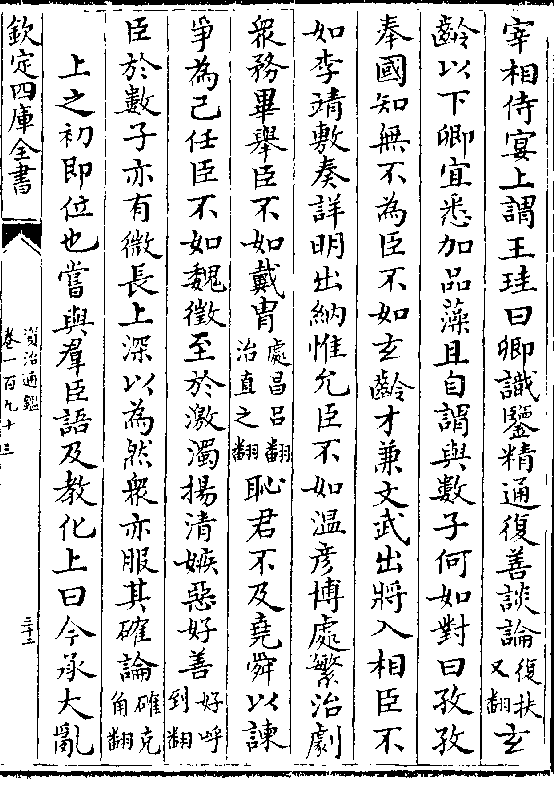 宰相侍宴上謂王珪曰卿識鑒精通復善談論復扶又翻玄
齡以下卿宜悉加品藻且自謂與數子何如對曰孜孜
奉國知無不為臣不如玄齡才兼文武出將入相臣不
如李靖敷奏詳明出納惟允臣不如温彦博處繁治劇
衆務畢舉臣不如戴胄處昌吕翻治直之翻恥君不及堯舜以諫
爭為己任臣不如魏徵至於激濁揚清嫉惡好善好呼到翻
臣於數子亦有微長上深以為然衆亦服其確論確克角翻
上之初即位也嘗與羣臣語及教化上曰今承大亂
欽定四庫全書
資治通鑑
卷一百九十三
三十二